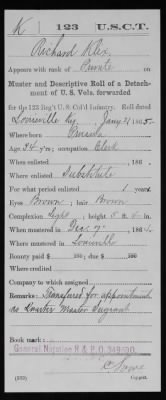 K | 123 | U.S.C.T.
Richard Klix
Appears with rank of Private on
Muster and Descriptive Roll of a Detach-
ment of U. S. Vols. forwarded
for the 123 Reg't U.S. Col'd Infantry. Roll dated
Louisville Ky. Jany 21 1865.
Where born Prussia
Age 34 y'rs; occupation Clerk
When enlisted , 186 .
Where enlisted Substitute
For what period enlisted 1 years.
Eyes Brown ; hair Brown
Complexion Light ; height 5 ft. 6 in.
When mustered in Dec. 7 , 1864.
Where mustered in Louisville
Bounty paid $ 100 ; due $ 100
Where credited
Company to which assigned
Remarks: Transferred for appointment
as Quarter Master Sergeant
Book mark:
General Notation R & P O
(339) Copyist.